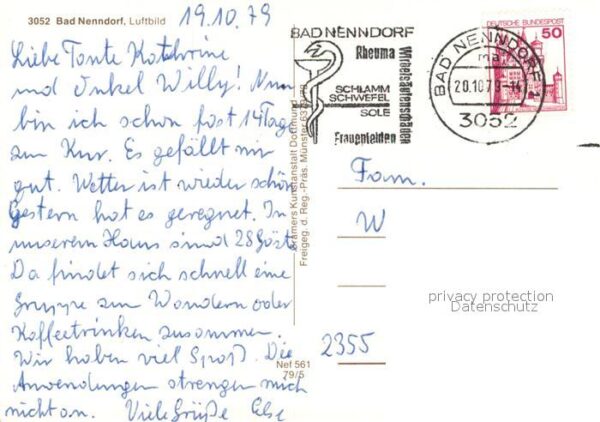 3052 Bad Nenndorf, Luftbild
19.10.79
Liebe Tante Kathrine
und Onkel Willy! Nun
bin ich schon fast 14 Tag
zur Kur. Es gefällt mir
gut. Wetter ist wieder schön
Gestern hat es geregnet. In
unserem Haus sind 28 Gäste
Da findet sich schnell eine
Gruppe zum Wandern oder
Kaffeetrinken zusammen.
Wir haben viel Spaß. Die
Anwendungen strengen mich
nicht an. Viele Grüße Else
Krämers Kunstanstalt Dortmund
Freigeg. d. Reg.-Präs. Münster
Nef 561
79/5
BAD NENNDORF
Rheuma
Wirbelsäulenschäden
SCHLAMM
SCHWEFEL
SOLE
Frauenleiden
BAD NENNDORF 1
ma
20.10.79-14
3052
DEUTSCHE BUNDESPOST
50
Fam.
W
2355
privacy protection
Datenschutz